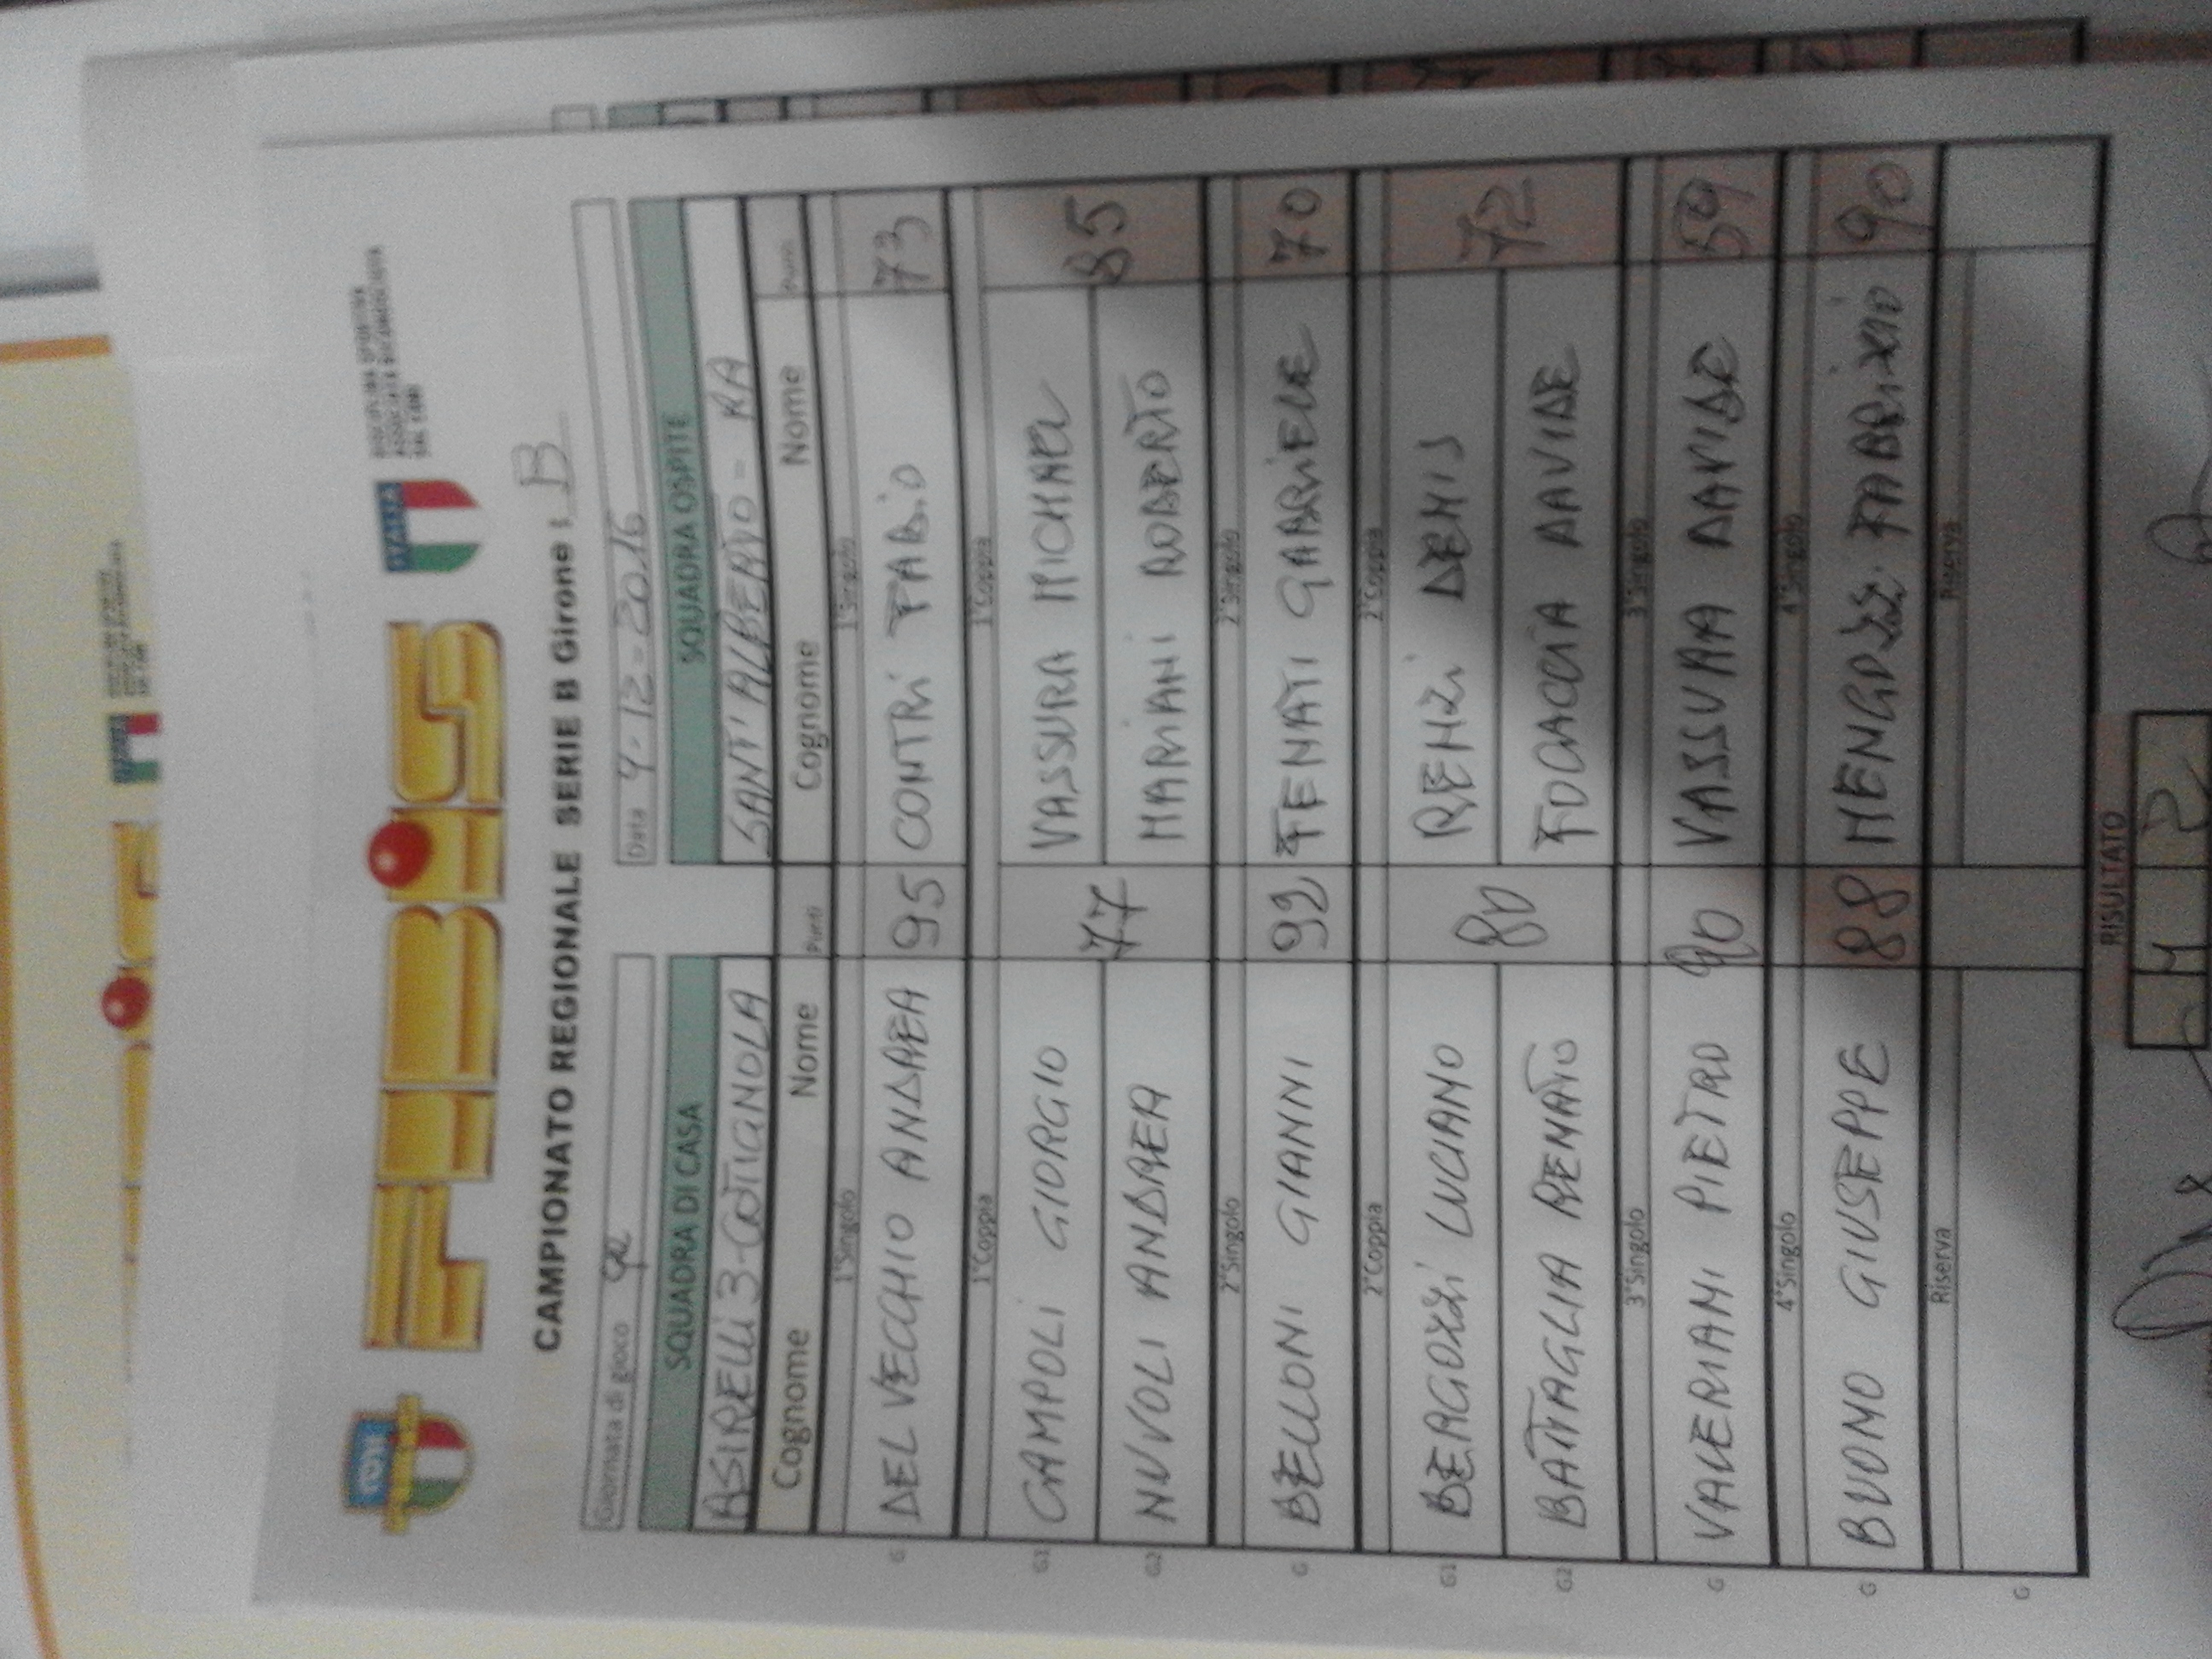 FIBIS
ITALIA
DISCIPLINA SPORTIVA
ASSOCIATA RICONOSCIUTA
DAL CONI
CAMPIONATO REGIONALE SERIE B Girone : B
Giornata di gioco Data 4-12-2016
SQUADRA DI CASA SQUADRA OSPITE
ASIRELLI 3-COTIGNOLA SANT'ALBERTO - RA
Cognome Nome Punti Cognome Nome Punti
1°Singolo 1°Singolo
G DEL VECCHIO ANDREA 95 CONTRI FABIO 73
1°Coppia 1°Coppia
G1 CAMPOLI GIORGIO 77 VASSURA MICHAEL 85
G2 NUVOLI ANDREA MARIANI ROBERTO
2°Singolo 2°Singolo
G BELLONI GIANNI 92 FENATI GABRIELE 70
2°Coppia 2°Coppia
G1 BERGOZZI LUCIANO 80 RENZI DEMIS 72
G2 BATTAGLIA RENATO FOCACCIA DAVIDE
3°Singolo 3°Singolo
G VALERIANI PIETRO 90 VASSURA DAVIDE 59
4°Singolo 4°Singolo
G BUONO GIUSEPPE 88 MENGOZZI FABRIZIO 90
Riserva Riserva
G
RISULTATO
4 2